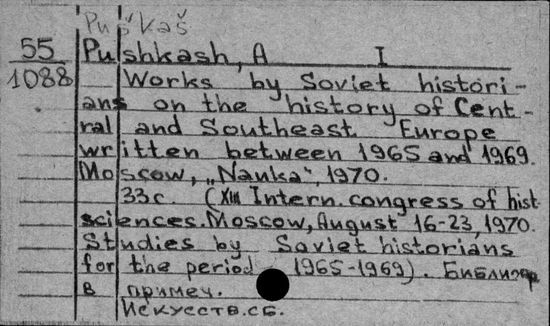 Puškaš
55 Pushkash, A I
1088 Works by Soviet histori-
ans on the history of Cent-
ral and Southeast Europe
written between 1965 and 1969.
Moscow, „Nauka", 1970.
33c. (XIII Intern. congress of hist.
sciences. Moscow, August 16-23, 1970.
Studies by Soviet historians
for the period 1965-1969). Библиогр
в примеч.
Искусств. сб.